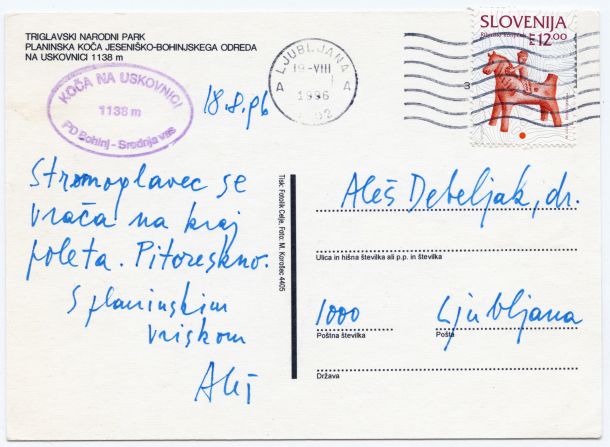 TRIGLAVSKI NARODNI PARK
PLANINSKA KOČA JESENIŠKO-BOHINJSKEGA ODREDA
NA USKOVNICI 1138 m
KOČA NA USKOVNICI
1138 m
PD Bohinj - Srednja vas
18.8.96
LJUBLJANA
19-VIII
1996
A A
SLOVENIJA
12.00
Stromoplavec se
vrača na kraj
poleta. Pitoreskno.
S planinskim
vriskom
Aleš
Tisk: Fotolik Celje, Foto: M. Korošec 4405
Aleš Debeljak, dr.
Ulica in hišna številka ali p.p. in številka
1000 Ljubljana
Poštna številka Pošta
Država